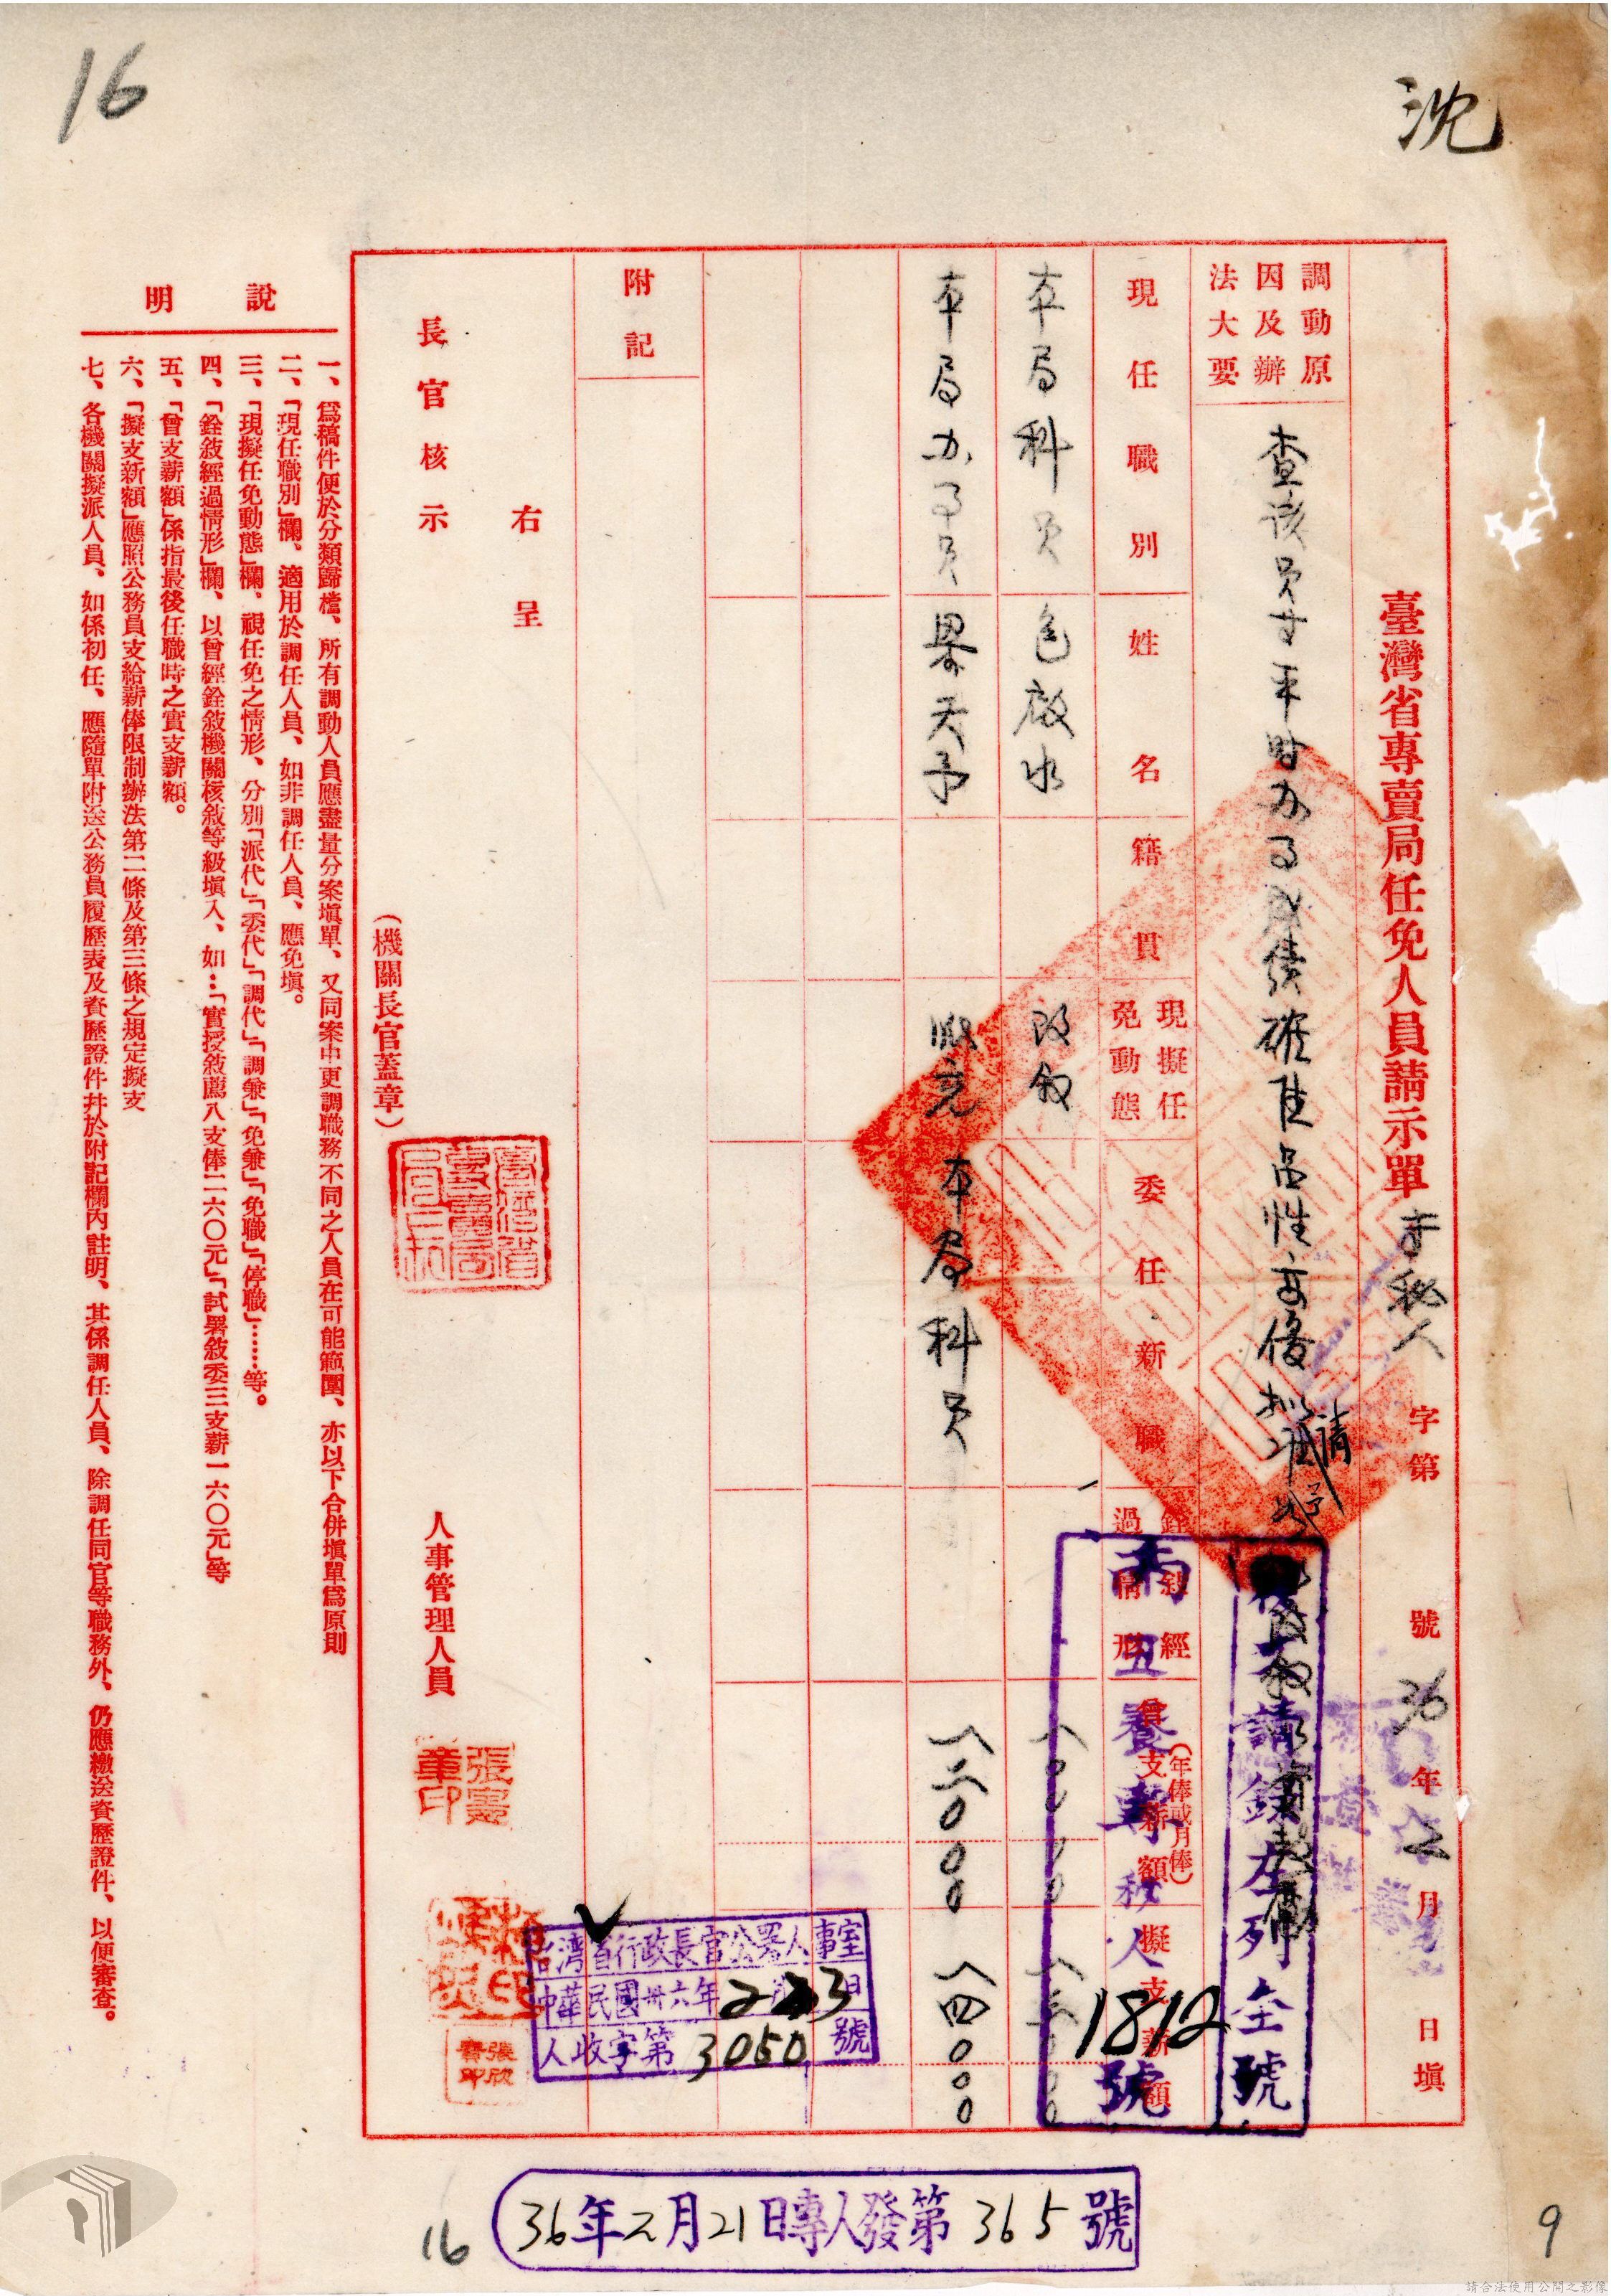 16
沈
臺灣省專賣局任免人員請示單
字第 號 36年2月 日填
調動原
因及辦
法大要
查該員等平時办事成績確佳品性亦優擬請
現任職別
姓名
籍貫
現擬任
免動態
委任新職
銓敍經
過情形
曾支薪額
(年俸或月俸)
擬支新額
本局科員
包啟水
改敘
本局办事員
梁天予
本局科員
一三〇〇〇
一四〇〇〇
附記
右呈
長官核示
(機關長官蓋章)
人事管理人員
張憲
章印
後請錄左列全號
丙丑養專秘人
1812
號
台湾省行政長官公署人事室
中華民國卅六年 2 月23日
人收字第 3050 號
說明
一、爲稿件便於分類歸檔、所有調動人員應盡量分案塡單、又同案中更調職務不同之人員在可能範圍、亦以下合併塡單爲原則
二、「現任職別」欄、適用於調任人員、如非調任人員、應免塡。
三、「現擬任免動態」欄、視任免之情形、分別「派代」「委代」「調代」「調兼」「免兼」「免職」「停職」……等。
四、「銓敍經過情形」欄、以曾經銓敍機關核敍等級塡入、如…「實授敍薦八支俸二六〇元」「試署敍委三支薪一六〇元」等
五、「曾支薪額」係指最後任職時之實支薪額。
六、「擬支新額」應照公務員支給薪俸限制辦法第二條及第三條之規定擬支
七、各機關擬派人員、如係初任、應隨單附送公務員履歷表及資歷證件幷於附記欄內註明、其係調任人員、除調任同官等職務外、仍應繳送資歷證件、以便審查。
36年2月21日專人發第365號
16
9
請合法使用公開之影像